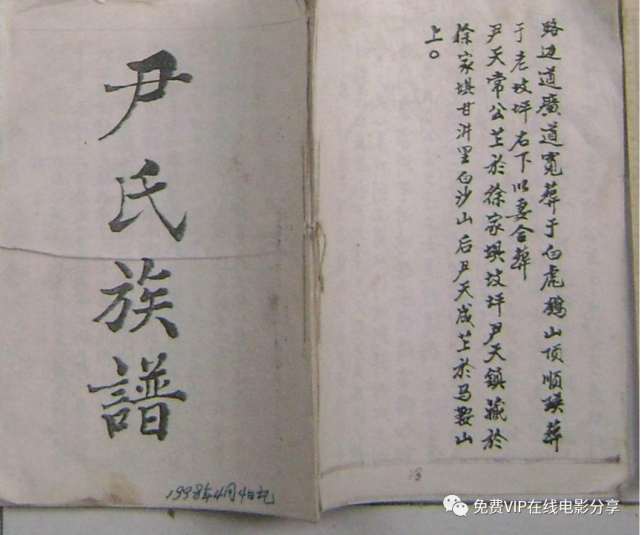 尹氏族譜
1998年4月4日
路边道廣道寬葬于白虎山顶顺瑛葬
于老坟坪右下以妻合葬
尹天常公芏於徐家埧坟坪尹天鎮藏於
徐家埧甘汫里白沙山后尹天成芏於马鞍山
上。
18
免费VIP在线电影分享